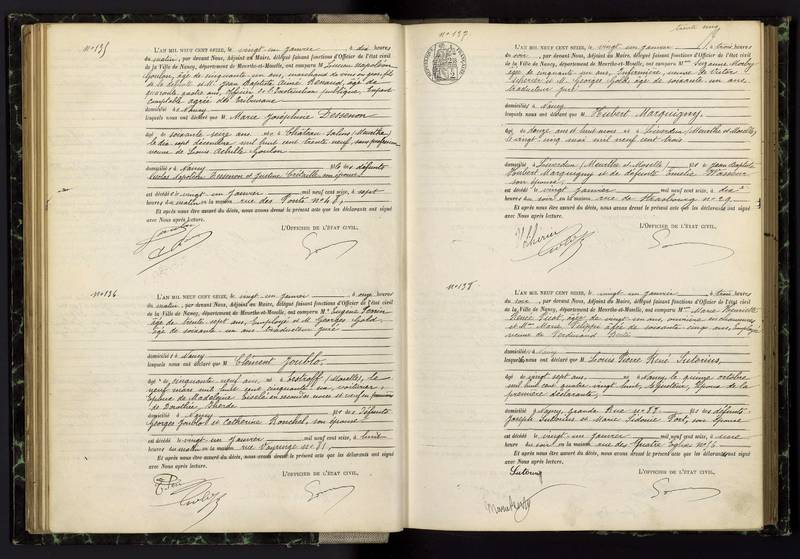 N° 135
L'AN MIL NEUF CENT SEIZE, le vingt un janvier à dix heures
du matin, par devant Nous, Adjoint au Maire, délégué faisant fonctions d'Officier de l'état civil
de la Ville de Nancy, département de Meurthe-et-Moselle, ont comparu M. Lucien Napoléon
Goulon, âgé de cinquante un ans, marchand de vins en gros, fils
de la défunte et M. Jean Baptiste Aimé Renaud, âgé de
quarante quatre ans, Officier de l'Instruction publique, Expert
comptable agréé des tribunaux
domicilié à Nancy
lesquels nous ont déclaré que Marie Joséphine Dessenon
âgé de soixante seize ans né à Château Salins (Meurthe)
le dix sept décembre mil huit cent trente neuf, sans profession
veuve de Louis Achille Goulon
domicilié à Nancy fille des défunts
Nicolas Napoléon Dessenon et Justine son épouse
est décédé le vingt un janvier mil neuf cent seize, à sept
heures du matin en la maison rue des Ponts n° 48,
Et après nous être assuré du décès, nous avons dressé le présent acte que les déclarants ont signé
avec Nous après lecture.
L'OFFICIER DE L'ÉTAT CIVIL,
N° 136
L'AN MIL NEUF CENT SEIZE, le vingt un janvier à onze heures
du matin, par devant Nous, Adjoint au Maire, délégué faisant fonctions d'Officier de l'état civil
de la Ville de Nancy, département de Meurthe-et-Moselle, ont comparu M. Eugène
âgé de trente sept ans, Employé et M. Georges Gold
âgé de soixante un ans traducteur juré
domicilié à Nancy
lesquels nous ont déclaré que M Clément Joublot
âgé de cinquante neuf ans né à (Moselle), le
neuf mars mil huit cent cinquante six, voiturier,
Epoux de Madeleine en secondes noces et veuf en premières
de Dorothée
domicilié à Nancy fils des défunts
Georges Joublot et Catherine son épouse
est décédé le vingt un janvier mil neuf cent seize, à une
heures du matin en la maison rue n° 81,
Et après nous être assuré du décès, nous avons dressé le présent acte que les déclarants ont signé
avec Nous après lecture.
L'OFFICIER DE L'ÉTAT CIVIL,
trente cinq
N° 137
L'AN MIL NEUF CENT SEIZE, le vingt un janvier à trois heures
du soir, par devant Nous, Adjoint au Maire, délégué faisant fonctions d'Officier de l'état civil
de la Ville de Nancy, département de Meurthe-et-Moselle, ont comparu Mme Suzanne
âgée de cinquante un ans, Infirmière, veuve de Victor
et M. Georges Gold âgé de soixante un ans
traducteur juré
domicilié à Nancy
lesquels nous ont déclaré que M Hubert Marquigny
âgé de douze ans et huit mois né à Liverdun (Meurthe et Moselle),
le vingt cinq mai mil neuf cent trois
domicilié à Liverdun (Meurthe et Moselle) fils de Jean Baptiste
Hubert Marquigny et de défunte Amélie
son épouse
est décédé le vingt janvier mil neuf cent seize, à dix
heures du soir en la maison rue de Strasbourg n° 29
Et après nous être assuré du décès, nous avons dressé le présent acte que les déclarants ont signé
avec Nous après lecture.
L'OFFICIER DE L'ÉTAT CIVIL,
N° 138
L'AN MIL NEUF CENT SEIZE, le vingt un janvier à trois heures
du soir, par devant Nous, Adjoint au Maire, délégué faisant fonctions d'Officier de l'état civil
de la Ville de Nancy, département de Meurthe-et-Moselle, ont comparu Mme Marie Henriette
Renée âgée de vingt six ans, ouvrière en chaussures
et Mme Marie Philippe âgée de soixante cinq ans, Employée
veuve de Ferdinand
domicilié à Nancy
lesquelles nous ont déclaré que M Louis Pierre René Sutorius,
âgé de vingt sept ans né à Nancy le quinze octobre
mil huit cent quatre vingt huit, Epoux de la
première déclarante,
domicilié à Nancy, grande Rue n° 88 fils des défunts
Joseph Sutorius et Marie Sidonie son épouse
est décédé le vingt un janvier mil neuf cent seize, à une
heure du soir en la maison rue des Quatre Eglises n° 5
Et après nous être assuré du décès, nous avons dressé le présent acte que les déclarants ont signé
avec Nous après lecture.
Sutorius
L'OFFICIER DE L'ÉTAT CIVIL,